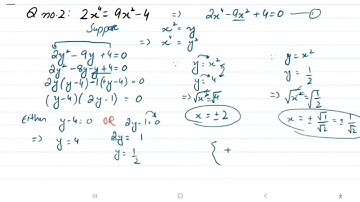 Q no.2: 2x⁴ = 9x² - 4 ⇒ 2x⁴ - 9x² + 4 = 0
Suppose x² = y
⇒ x⁴ = y²
2y² - 9y + 4 = 0
2y² - 8y - y + 4 = 0
2y(y-4) - 1(y-4) = 0
(y-4)(2y-1) = 0
Either y-4=0 OR 2y-1=0
⇒ y = 4
2y = 1
y = 1/2
∵ y = x²
y = 4
⇒ √x² = √4
x = ±2
∵ y = x²
y = 1/2
⇒ √x² = √1/2
x = ± √1/√2 = ± 1/√2
{ +